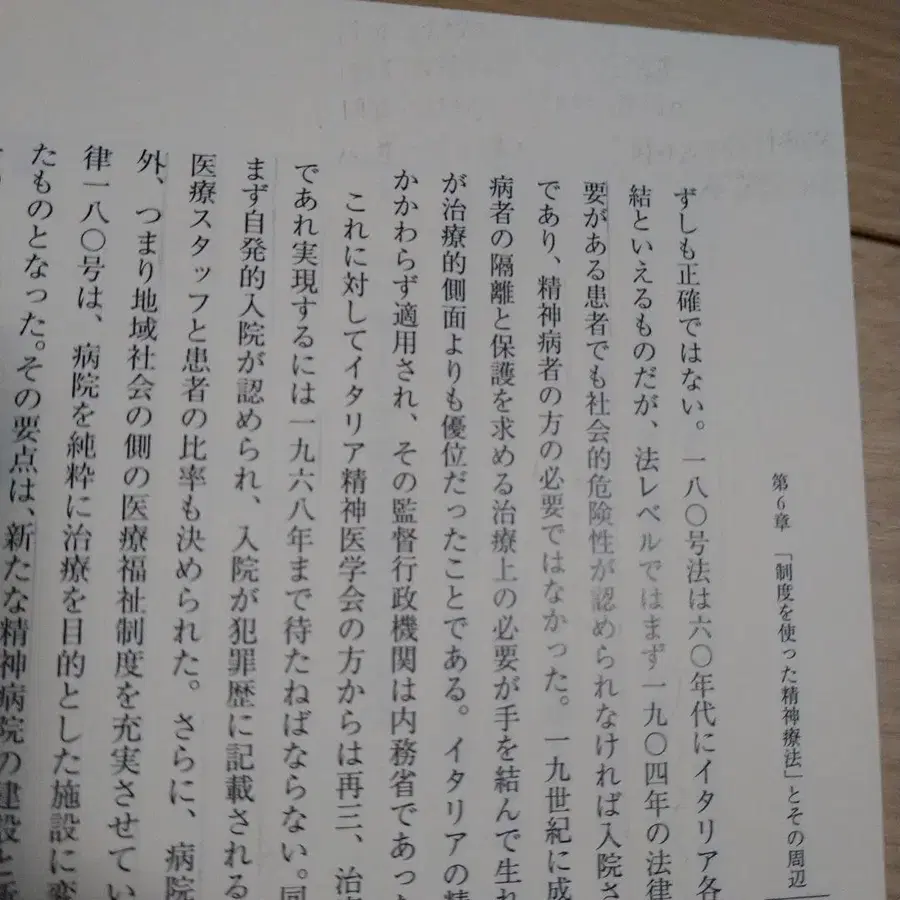 第6章　「制度を使った精神療法」とその周辺
ずしも正確ではない。一八〇号法は六〇年代にイタリア各
結といえるものだが、法レベルではまず一九〇四年の法律
要がある患者でも社会的危険性が認められなければ入院さ
であり、精神病者の方の必要ではなかった。一九世紀に成
病者の隔離と保護を求める治療上の必要が手を結んで生れ
が治療的側面よりも優位だったことである。イタリアの精
かかわらず適用され、その監督行政機関は内務省であった
これに対してイタリア精神医学会の方からは再三、治
であれ実現するには一九六八年まで待たねばならない。同
まず自発的入院が認められ、入院が犯罪歴に記載される
医療スタッフと患者の比率も決められた。さらに、病院
外、つまり地域社会の側の医療福祉制度を充実させてい
律一八〇号は、病院を純粋に治療を目的とした施設に変
たものとなった。その要点は、新たな精神病院の建設と